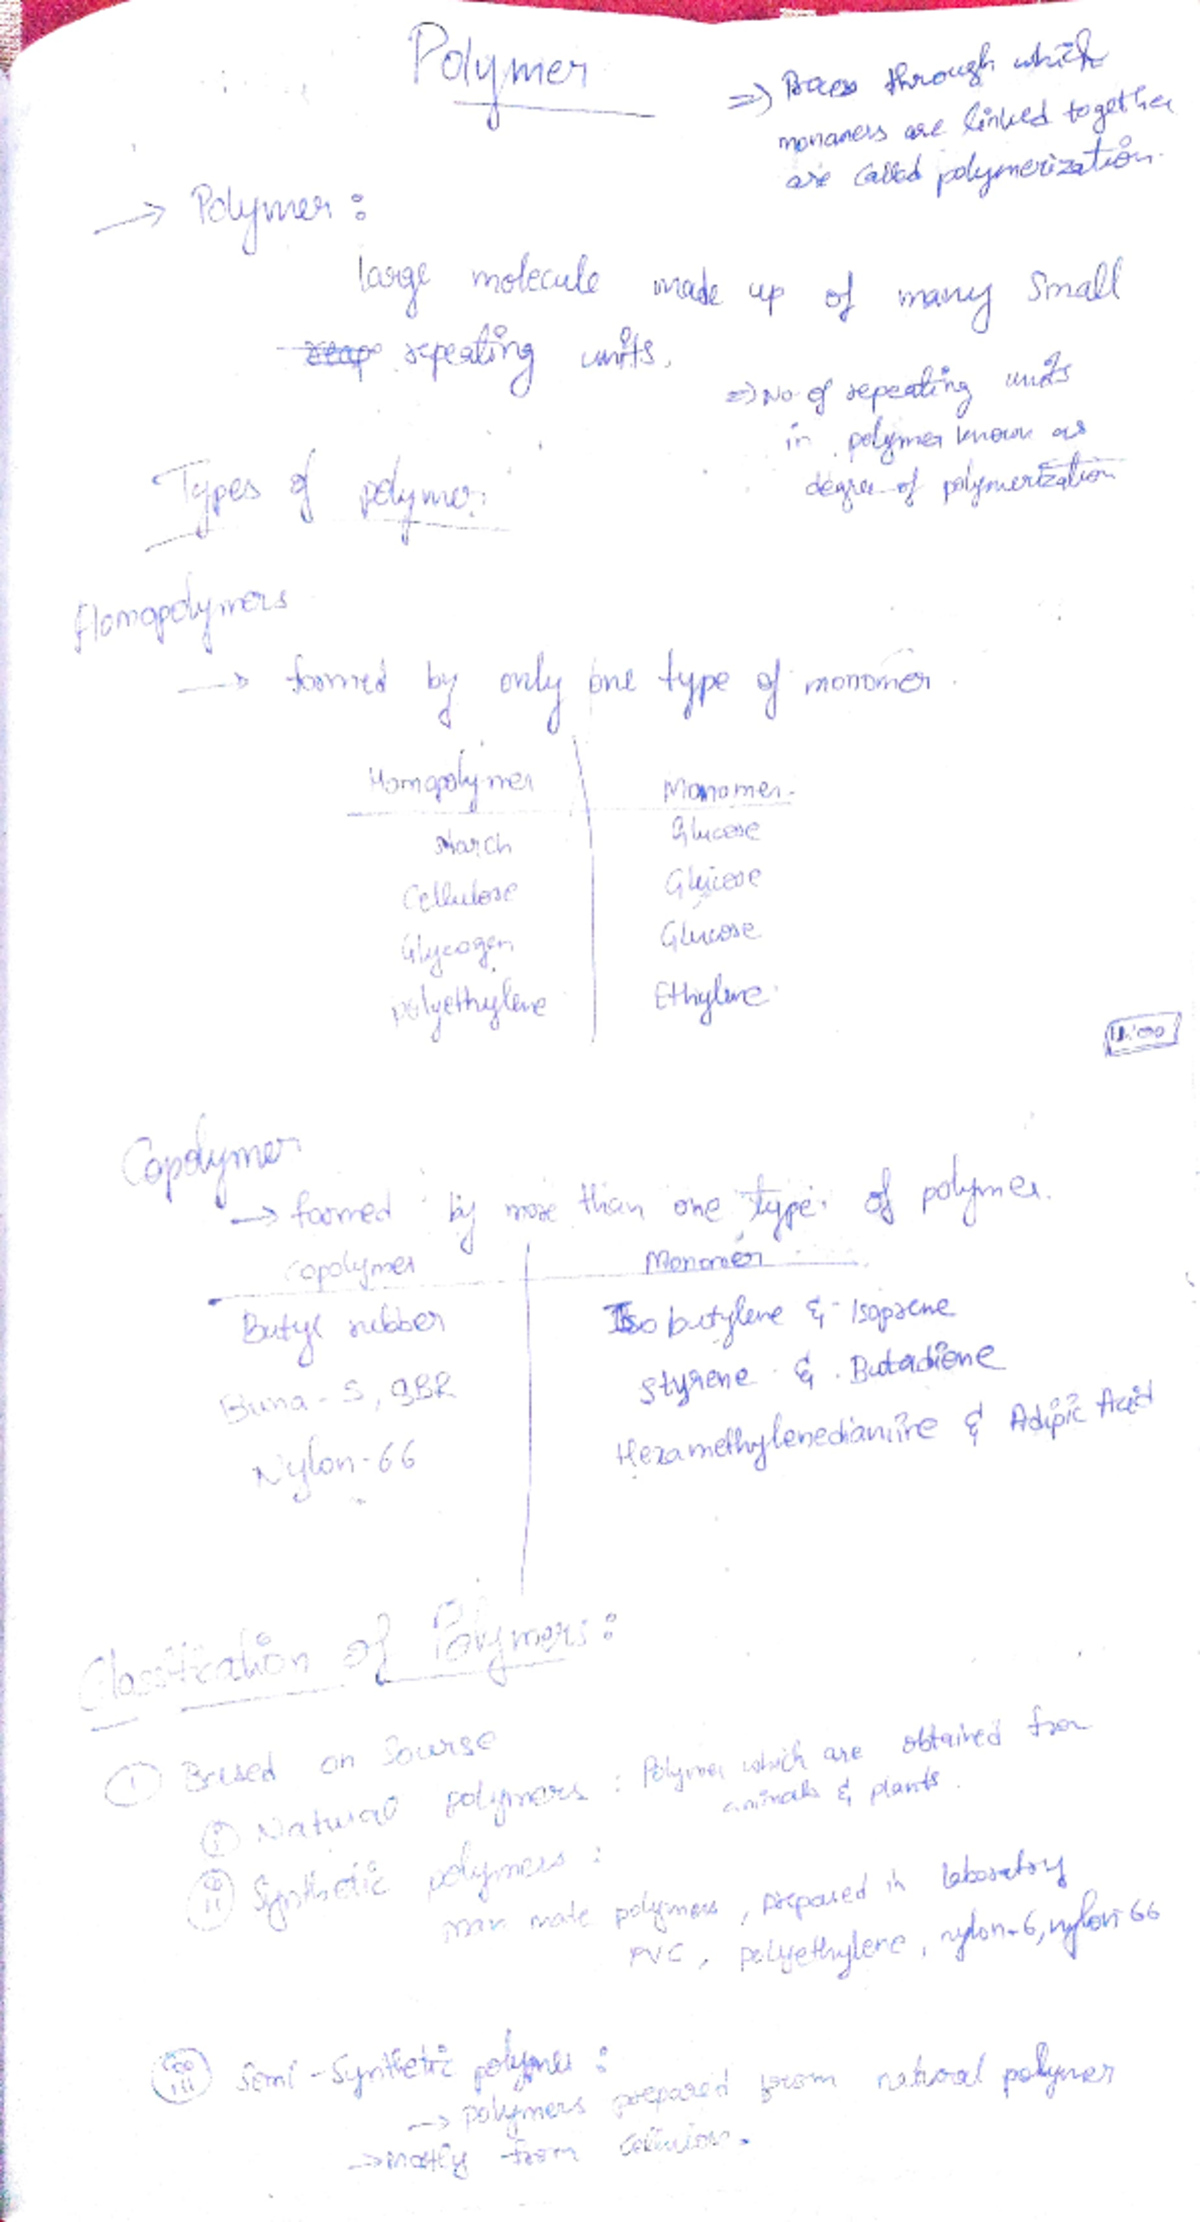 Polymer
=> Process through which
monomers are linked together
are called polymerization.
→ Polymer :
large molecule made up of many small
repeating units.
=> No of repeating units
in polymer known as
degree of polymerization
Types of polymer:
Homopolymers
→ formed by only one type of monomer.
Homopolymer Monomer
Starch Glucose
Cellulose Glucose
Glycogen Glucose
polyethylene Ethylene
Copolymer
→ formed by more than one type of polymer.
Copolymer Monomer
Butyl rubber Isobutylene & Isoprene
Buna-S, SBR Styrene & Butadiene
Nylon-66 Hexamethylenediamine & Adipic Acid
Classification of Polymers :
① Based on Sourse
(i) Natural polymers : Polymer which are obtained from
animals & plants.
(ii) Synthetic polymers :
man made polymers, prepared in laboratory
PVC, polyethylene, nylon-6, nylon-66
(iii) Semi-Synthetic polymer :
→ polymers prepared from natural polymer
→ mostly from